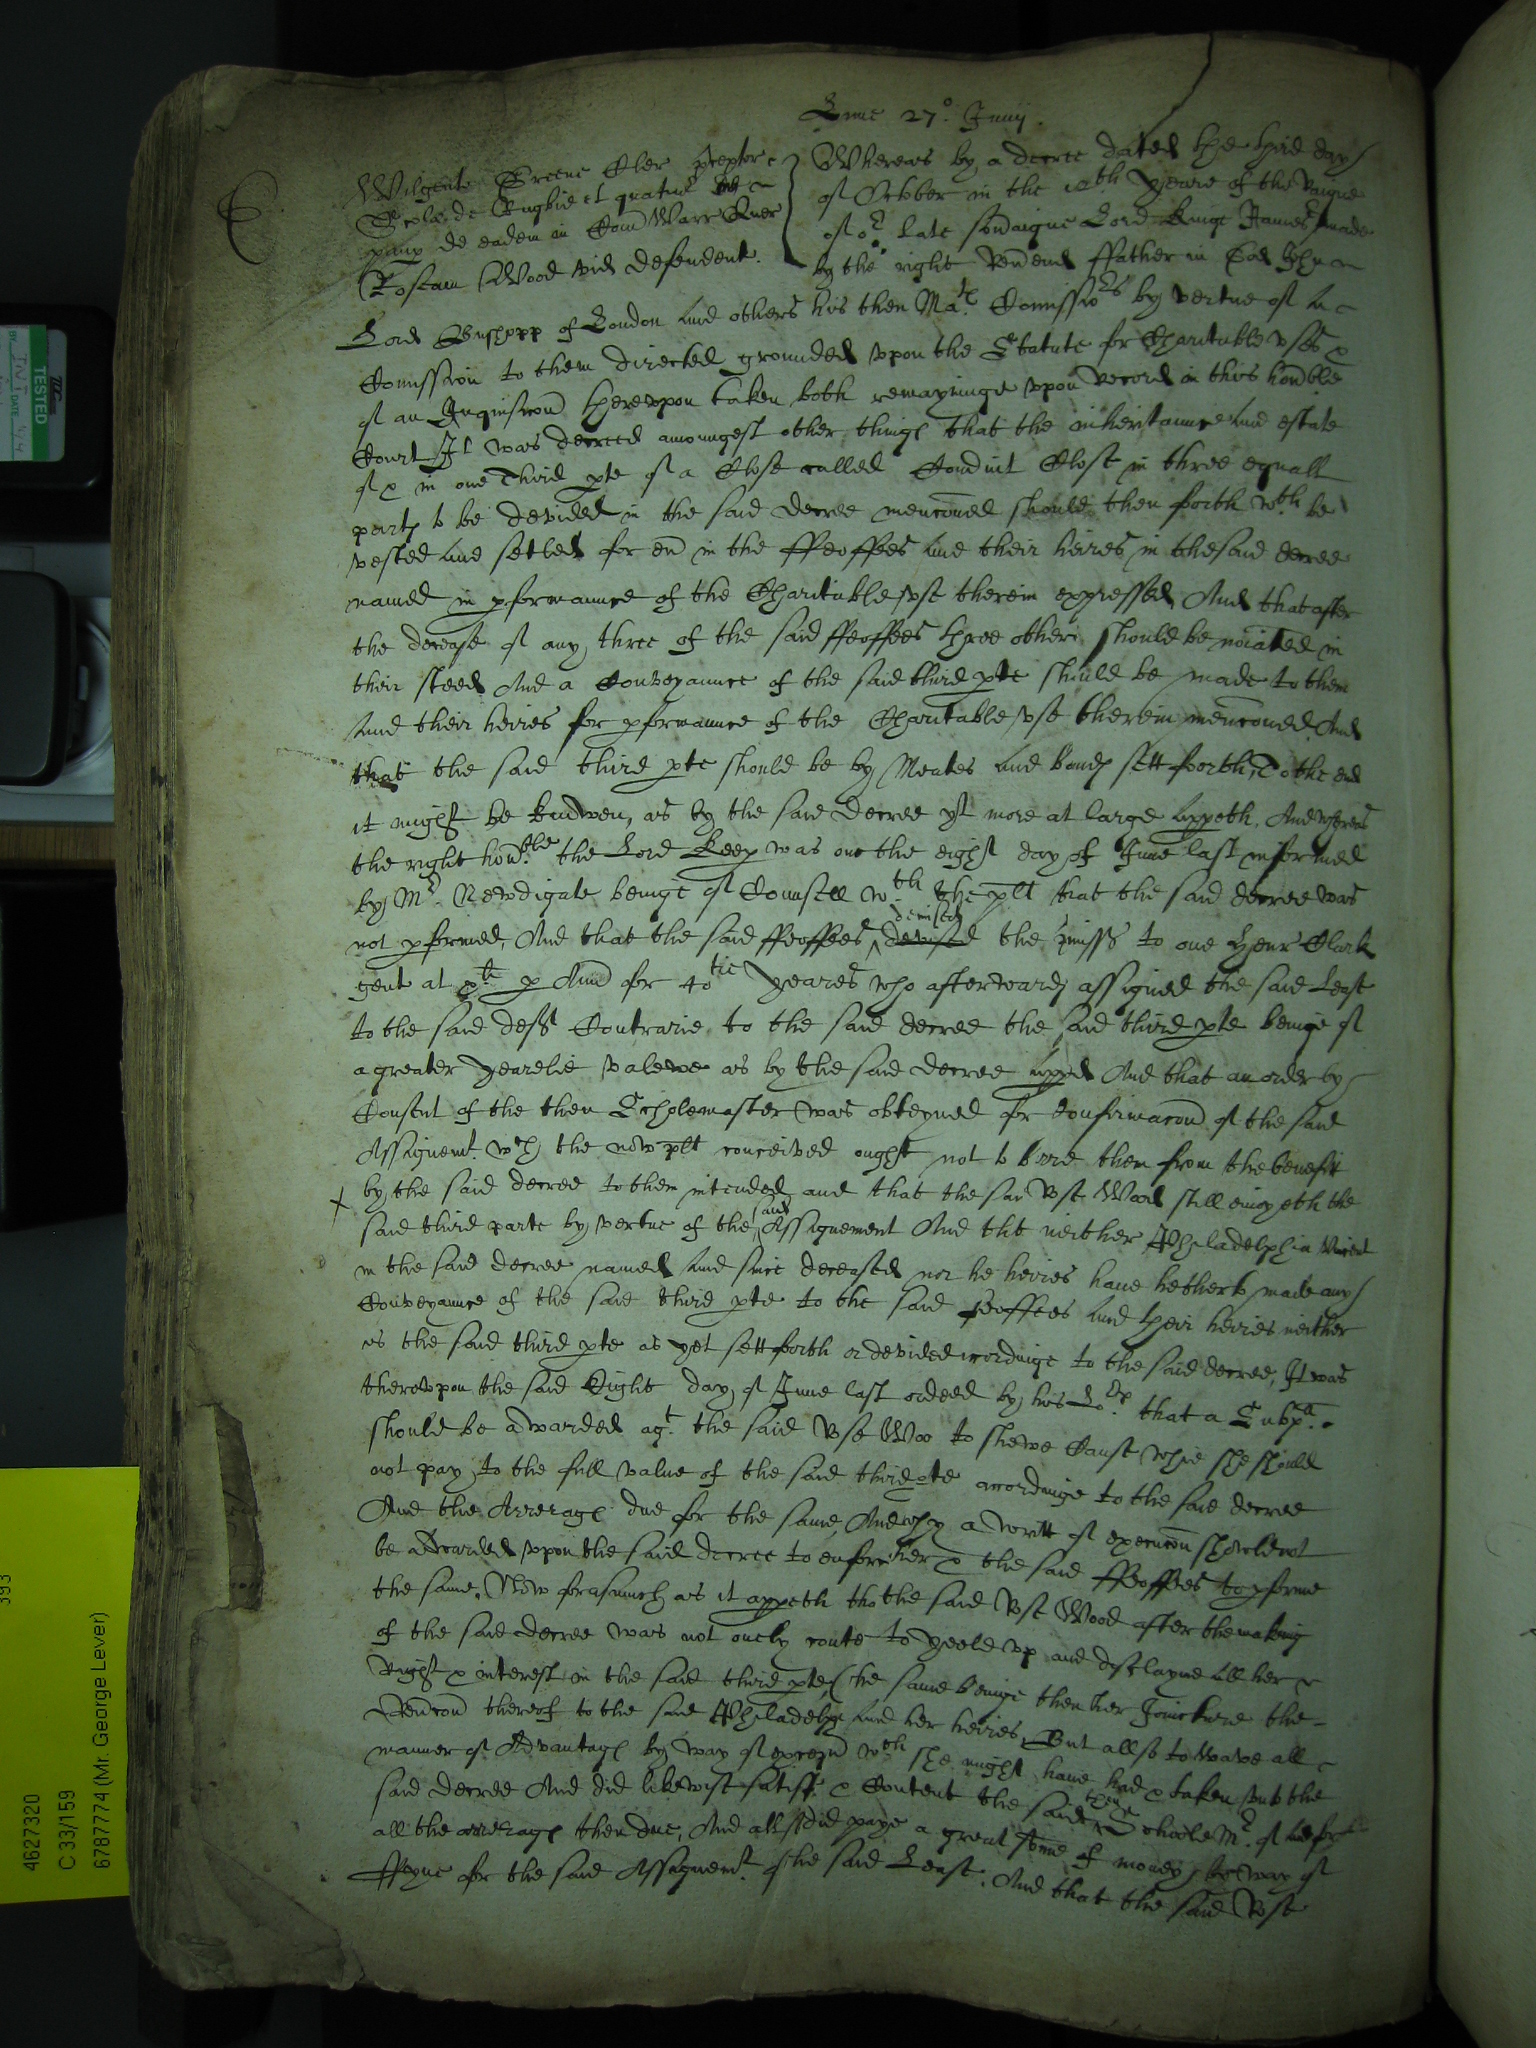 Lune 27º. Junij.
Wilgent Greene Cler preceptor
Scole de Rugbie et quatuor
paup de eadem in Com Warr Quer
Rosam Wood vid defendent.
Whereas by a decree dated the third day
of October in the 12th yeare of the raigne
of or. late soveraigne Lord Kinge James made
by the right Revend ffather in God John
Lord Busshopp of London and others his then Mats. Comissiors by vertue of a
Comission to them directed grounded vpon the Statute for Charitable vses &
of an Inquisicon therevpon taken both remayninge vpon Record in this honble
Court It was decreed amoungest other things that the inheritaunce and estate
of & in one Third pte of a Close called Conduit Close in three equall
parts to be devided in the said decree menconed should then forth wth be
vested and setled for evr in the ffeoffees and their heires in the said decree
named in pformaunce of the Charitable vse therein expressed And that after
the decease of any three of the said ffeoffees three others should be noiated in
their steed And a Conveyaunce of the said third pte should be made to them
and their heires for pformaunce of the Charitable vse therein menconed And
that the said third pte should be by Meates and bounds sett foorth, To the end
it might be knowen, as by the said decree yt more at large appeth, And whereas
the right honble the Lord Keep was one the eight day of June last informed
by Mr. Newdigate beinge of Counsell wth. the plt that the said decree was
not pformed, And that the said ffeoffees demised the pmisss to one Henr Clark
gent at xs p Ann for 40tie yeares who afterwards assigned the said Lease
to the said deft Contrarie to the said decree the said third pte beinge of
a greater yearelie valewe as by the said decree appeed And that an order by
Consent of the then Scholemaster was obteyned for confirmacon of the said
Assignemt. wch the now plt conceived ought not to barre them from the benefitt
by the said decree to them intended and that the said Rose Wood still enioyeth the
said third parte by vertue of the said Assignement And tht neither Philadelphia
in the said decree named and since deceased nor he heires have hetherto made any
Conveyaunce of the said third pte to the said feoffees and their heires neither
is the said third pte as yet sett forth or devided accordinge to the said decree, It was
therevpon the said Eight day of June last ordeed by his Lopp. that a Subpa.
should be awarded agt. the said Rose Woo to shewe Cause whie she should
not pay to the full value of the said third pte accordinge to the said decree
And the Arrerags due for the same, And why a writt of execucon should not
be awarded vpon the said decree to enforce her & the said ffeoffees to pforme
the same. Now forasmuch as it appeth tho the said Rose Wood after the making
of the said decree was not onely conte to yeeld vp and disclayme all her
Right & interest in the said third pte (the same beinge then her Joincture the
Revcon thereof to the said Philadelph and her heires, But allso to wave all
manner of Advantags by way of excepcn wch she might have had & taken vnto the
said decree And did likewise satisfi & Content the said then Schoole Mr. of
all the arrerags then due, And allso did paye a great some of money by way of
ffyne for the said Assignemt. of the said Lease. And that the said Rose
TESTED
DATE 4/4
393
4627320
C 33/159
6787774 (Mr. George Lever)